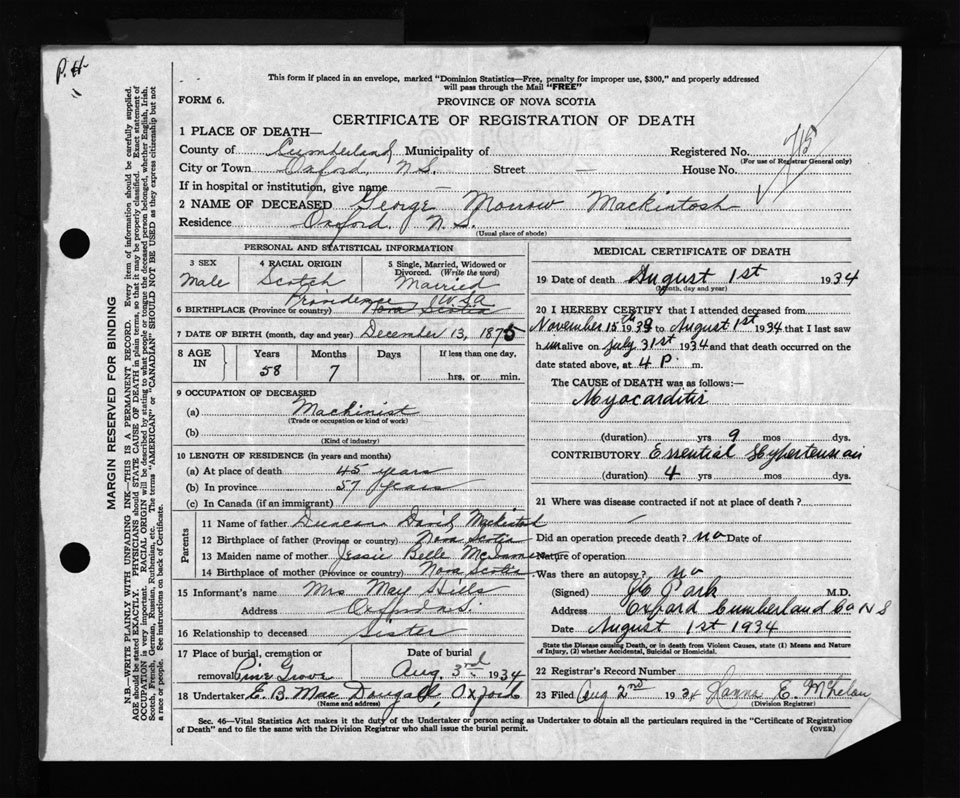 P.H.
This form if placed in an envelope, marked "Dominion Statistics—Free, penalty for improper use, $300," and properly addressed
will pass through the Mail "FREE"
FORM 6.
PROVINCE OF NOVA SCOTIA
CERTIFICATE OF REGISTRATION OF DEATH
1 PLACE OF DEATH—
County of Cumberland Municipality of Registered No. 715
(For use of Registrar General only)
City or Town Oxford, N.S. Street — House No.
If in hospital or institution, give name —
2 NAME OF DECEASED George Morrow Mackintosh
Residence Oxford, N.S.
(Usual place of abode)
PERSONAL AND STATISTICAL INFORMATION
3 SEX 4 RACIAL ORIGIN 5 Single, Married, Widowed or
Divorced. (Write the word)
Male Scotch Married
Providence U.S.A
6 BIRTHPLACE (Province or country) Nova Scotia
7 DATE OF BIRTH (month, day and year) December 13, 1875
8 AGE IN Years Months Days If less than one day,
58 7 hrs. or min.
9 OCCUPATION OF DECEASED
(a) Machinist
(Trade or occupation or kind of work)
(b)
(Kind of industry)
10 LENGTH OF RESIDENCE (in years and months)
(a) At place of death 45 years
(b) In province 57 years
(c) In Canada (if an immigrant)
Parents
11 Name of father Duncan David Mackintosh
12 Birthplace of father (Province or country) Nova Scotia
13 Maiden name of mother Jessie Belle
14 Birthplace of mother (Province or country) Nova Scotia
15 Informant's name Mrs May Hills
Address Oxford N.S.
16 Relationship to deceased Sister
17 Place of burial, cremation or Date of burial
removal Pine Grove Aug. 3rd 1934
18 Undertaker E. B. Mac Dougall, Oxford
(Name and address)
MEDICAL CERTIFICATE OF DEATH
19 Date of death August 1st 1934
(Month, day and year)
20 I HEREBY CERTIFY that I attended deceased from
November 15th 1933 to August 1st 1934 that I last saw
him alive on July 31st 1934 and that death occurred on the
date stated above, at 4 P. m.
The CAUSE of DEATH was as follows:—
Myocarditis
(duration) yrs 9 mos dys.
CONTRIBUTORY Essential Hypertension
(duration) 4 yrs mos dys.
21 Where was disease contracted if not at place of death?
Did an operation precede death? no Date of
Nature of operation
Was there an autopsy? no
(Signed) Park M.D.
Address Oxford Cumberland Co N S
Date August 1st 1934
State the Disease causing Death, or in death from Violent Causes, state (1) Means and Nature
of Injury, (2) whether Accidental, Suicidal or Homicidal.
22 Registrar's Record Number
23 Filed Aug 2nd 1934 E.
(Division Registrar)
Sec. 46—Vital Statistics Act makes it the duty of the Undertaker or person acting as Undertaker to obtain all the particulars required in the "Certificate of Registration
of Death" and to file the same with the Division Registrar who shall issue the burial permit.
(OVER)
MARGIN RESERVED FOR BINDING
N.B.—WRITE PLAINLY WITH UNFADING INK—THIS IS A PERMANENT RECORD. Every item of information should be carefully supplied.
AGE should be stated EXACTLY. PHYSICIANS should STATE CAUSE OF DEATH in plain terms, so that it may be properly classified. Exact statement of
OCCUPATION is very important. RACIAL ORIGIN will be described by stating to what people or tongue the deceased person belonged, whether English, Irish,
Scotch, French, German, Russian, Ruthenian, etc. The terms "AMERICAN" or "CANADIAN" SHOULD NOT BE USED as they express citizenship but not
a race or people. See instructions on back of Certificate.